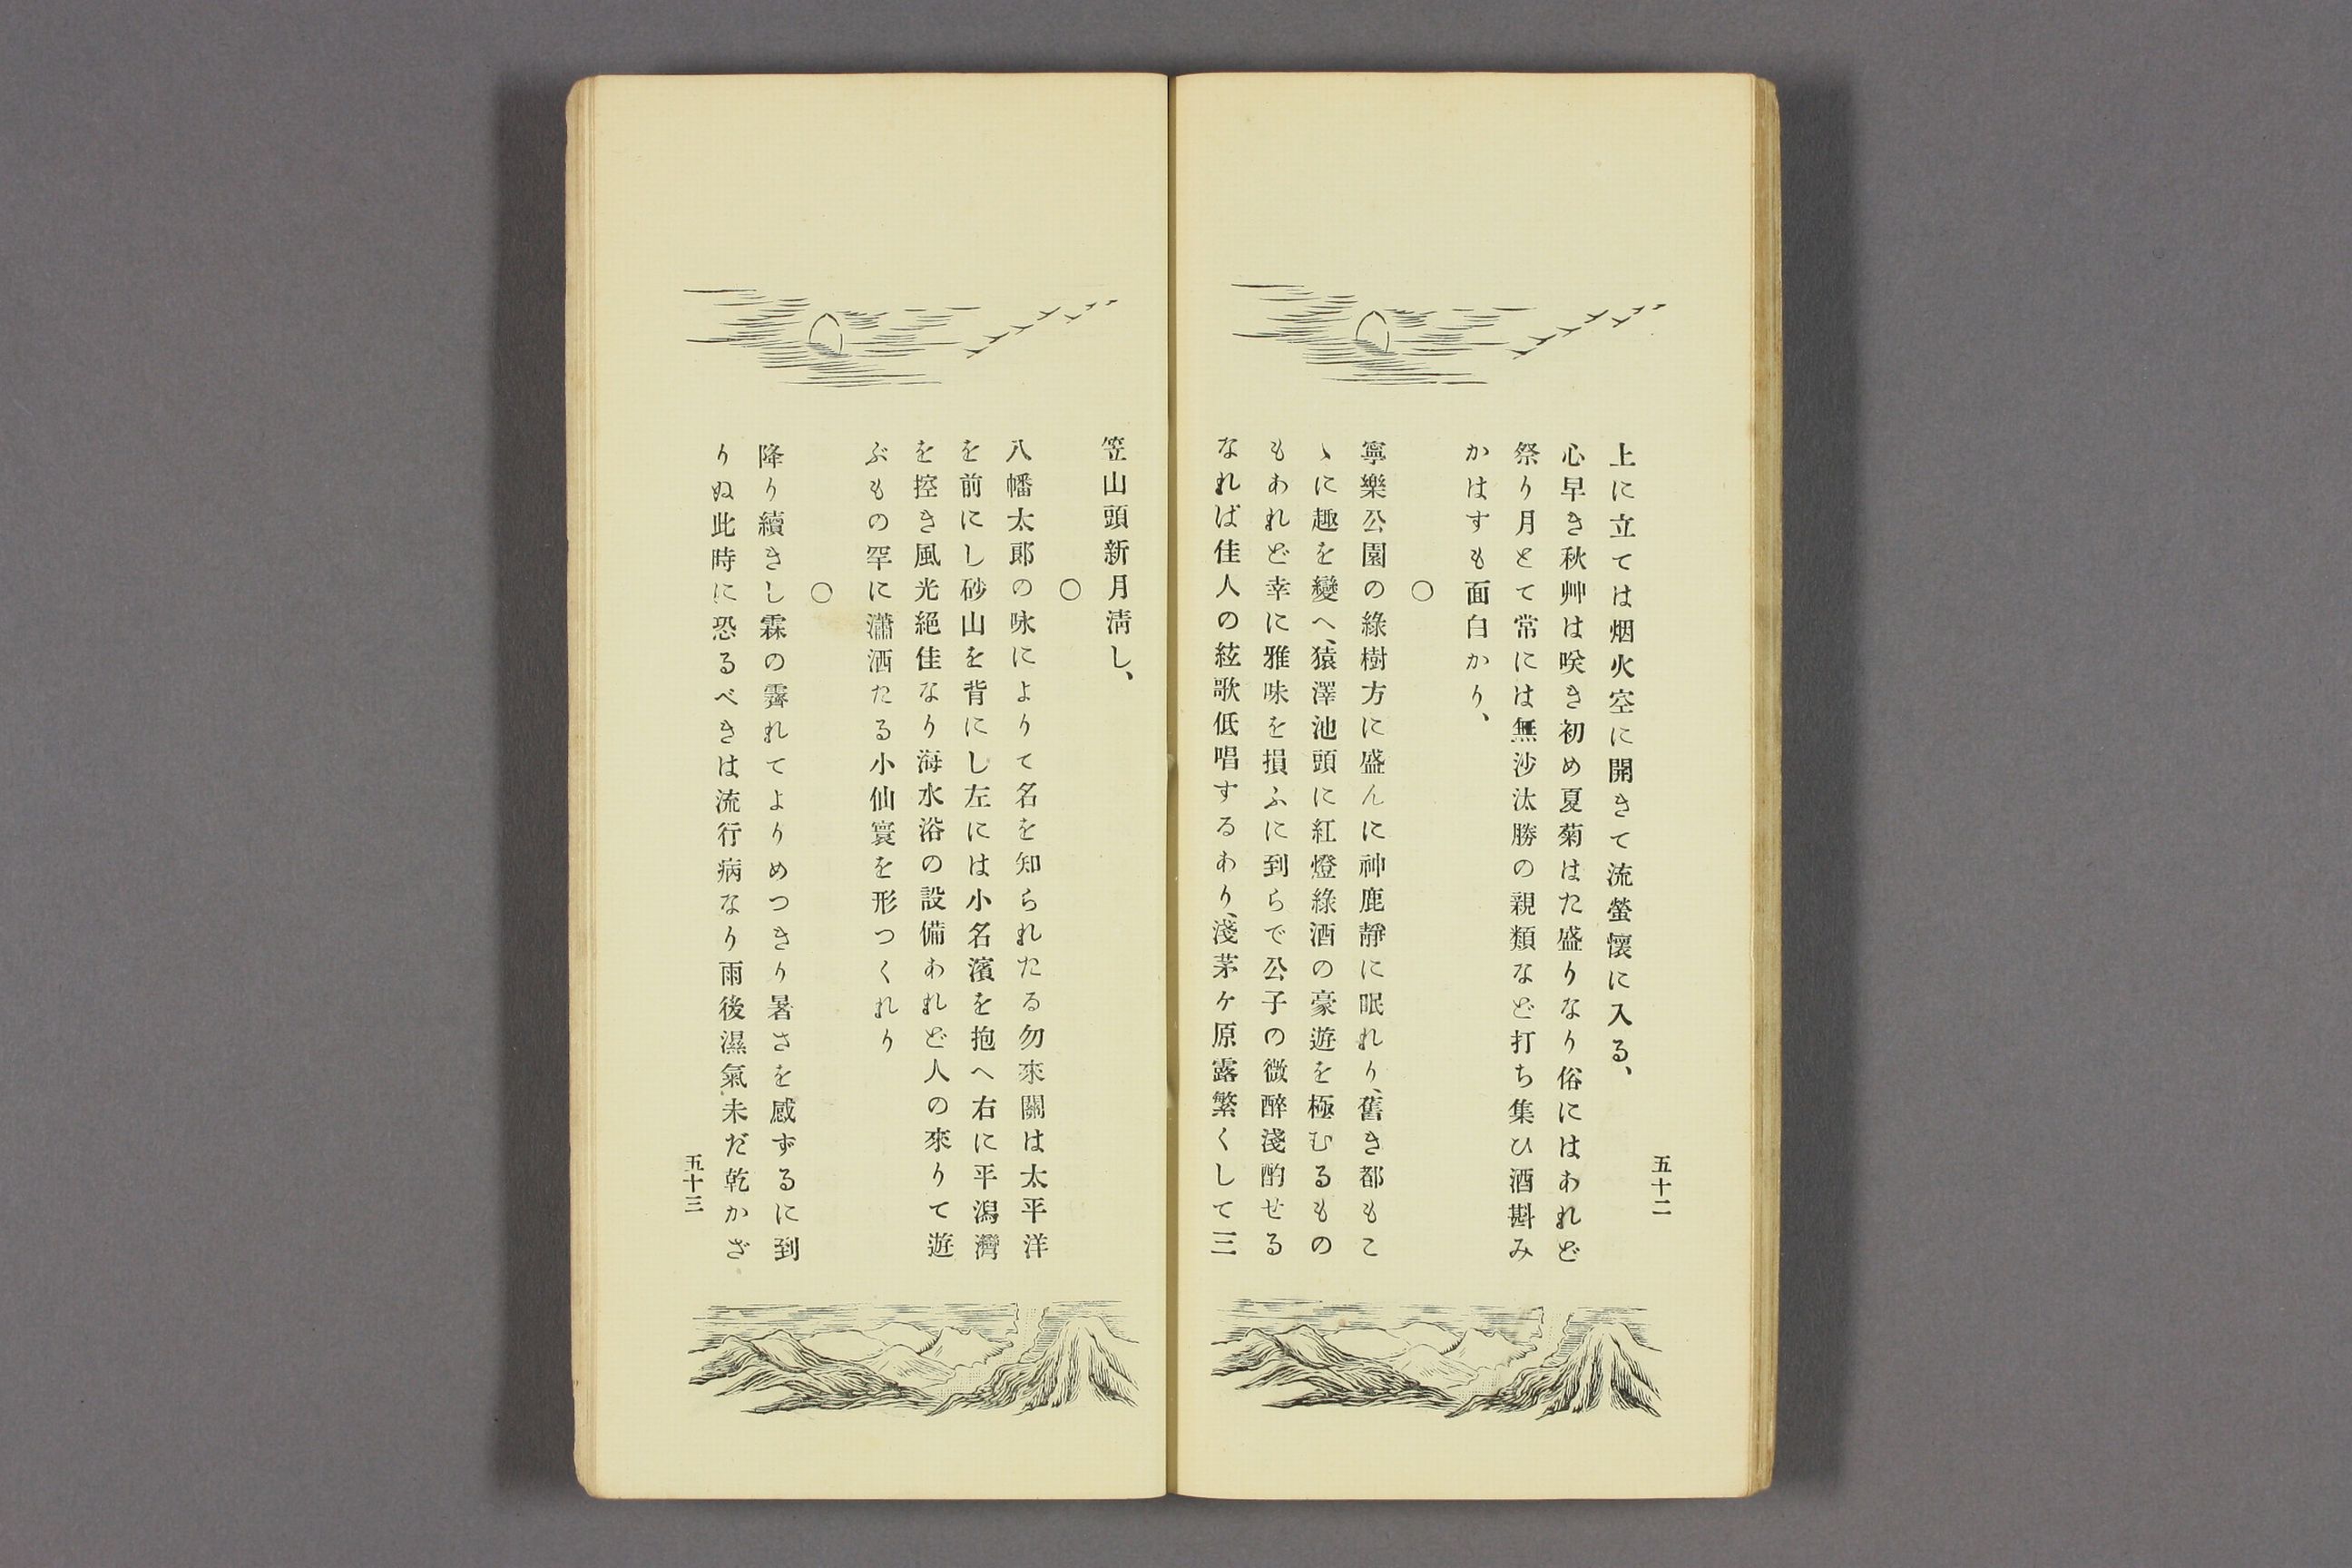 五十二
上に立ては烟火空に開きて流螢懷に入る、
心早き秋艸は咲き初め夏菊はた盛りなり俗にはあれど
祭り月とて常には無沙汰勝の親類など打ち集ひ酒斟み
かはすも面白かり、
〇
寧樂公園の綠樹方に盛んに神鹿靜に眠れり、舊き都もこ
ゝに趣を變へ、猿澤池頭に紅燈綠酒の豪遊を極むるもの
もあれど幸に雅味を損ふに到らで公子の微醉淺酌せる
なれば佳人の絃歌低唱するあり、淺茅ケ原露繁くして三
笠山頭新月淸し、
〇
八幡太郎の咏によりて名を知られたる勿來關は太平洋
を前にし砂山を背にし左には小名濱を抱へ右に平潟灣
を控き風光絕佳なり海水浴の設備あれど人の來りて遊
ぶもの罕に瀟洒たる小仙寰を形つくれり
〇
降り續きし霖の霽れてよりめつきり暑さを感ずるに到
りぬ此時に恐るべきは流行病なり雨後濕氣未だ乾かざ
五十三